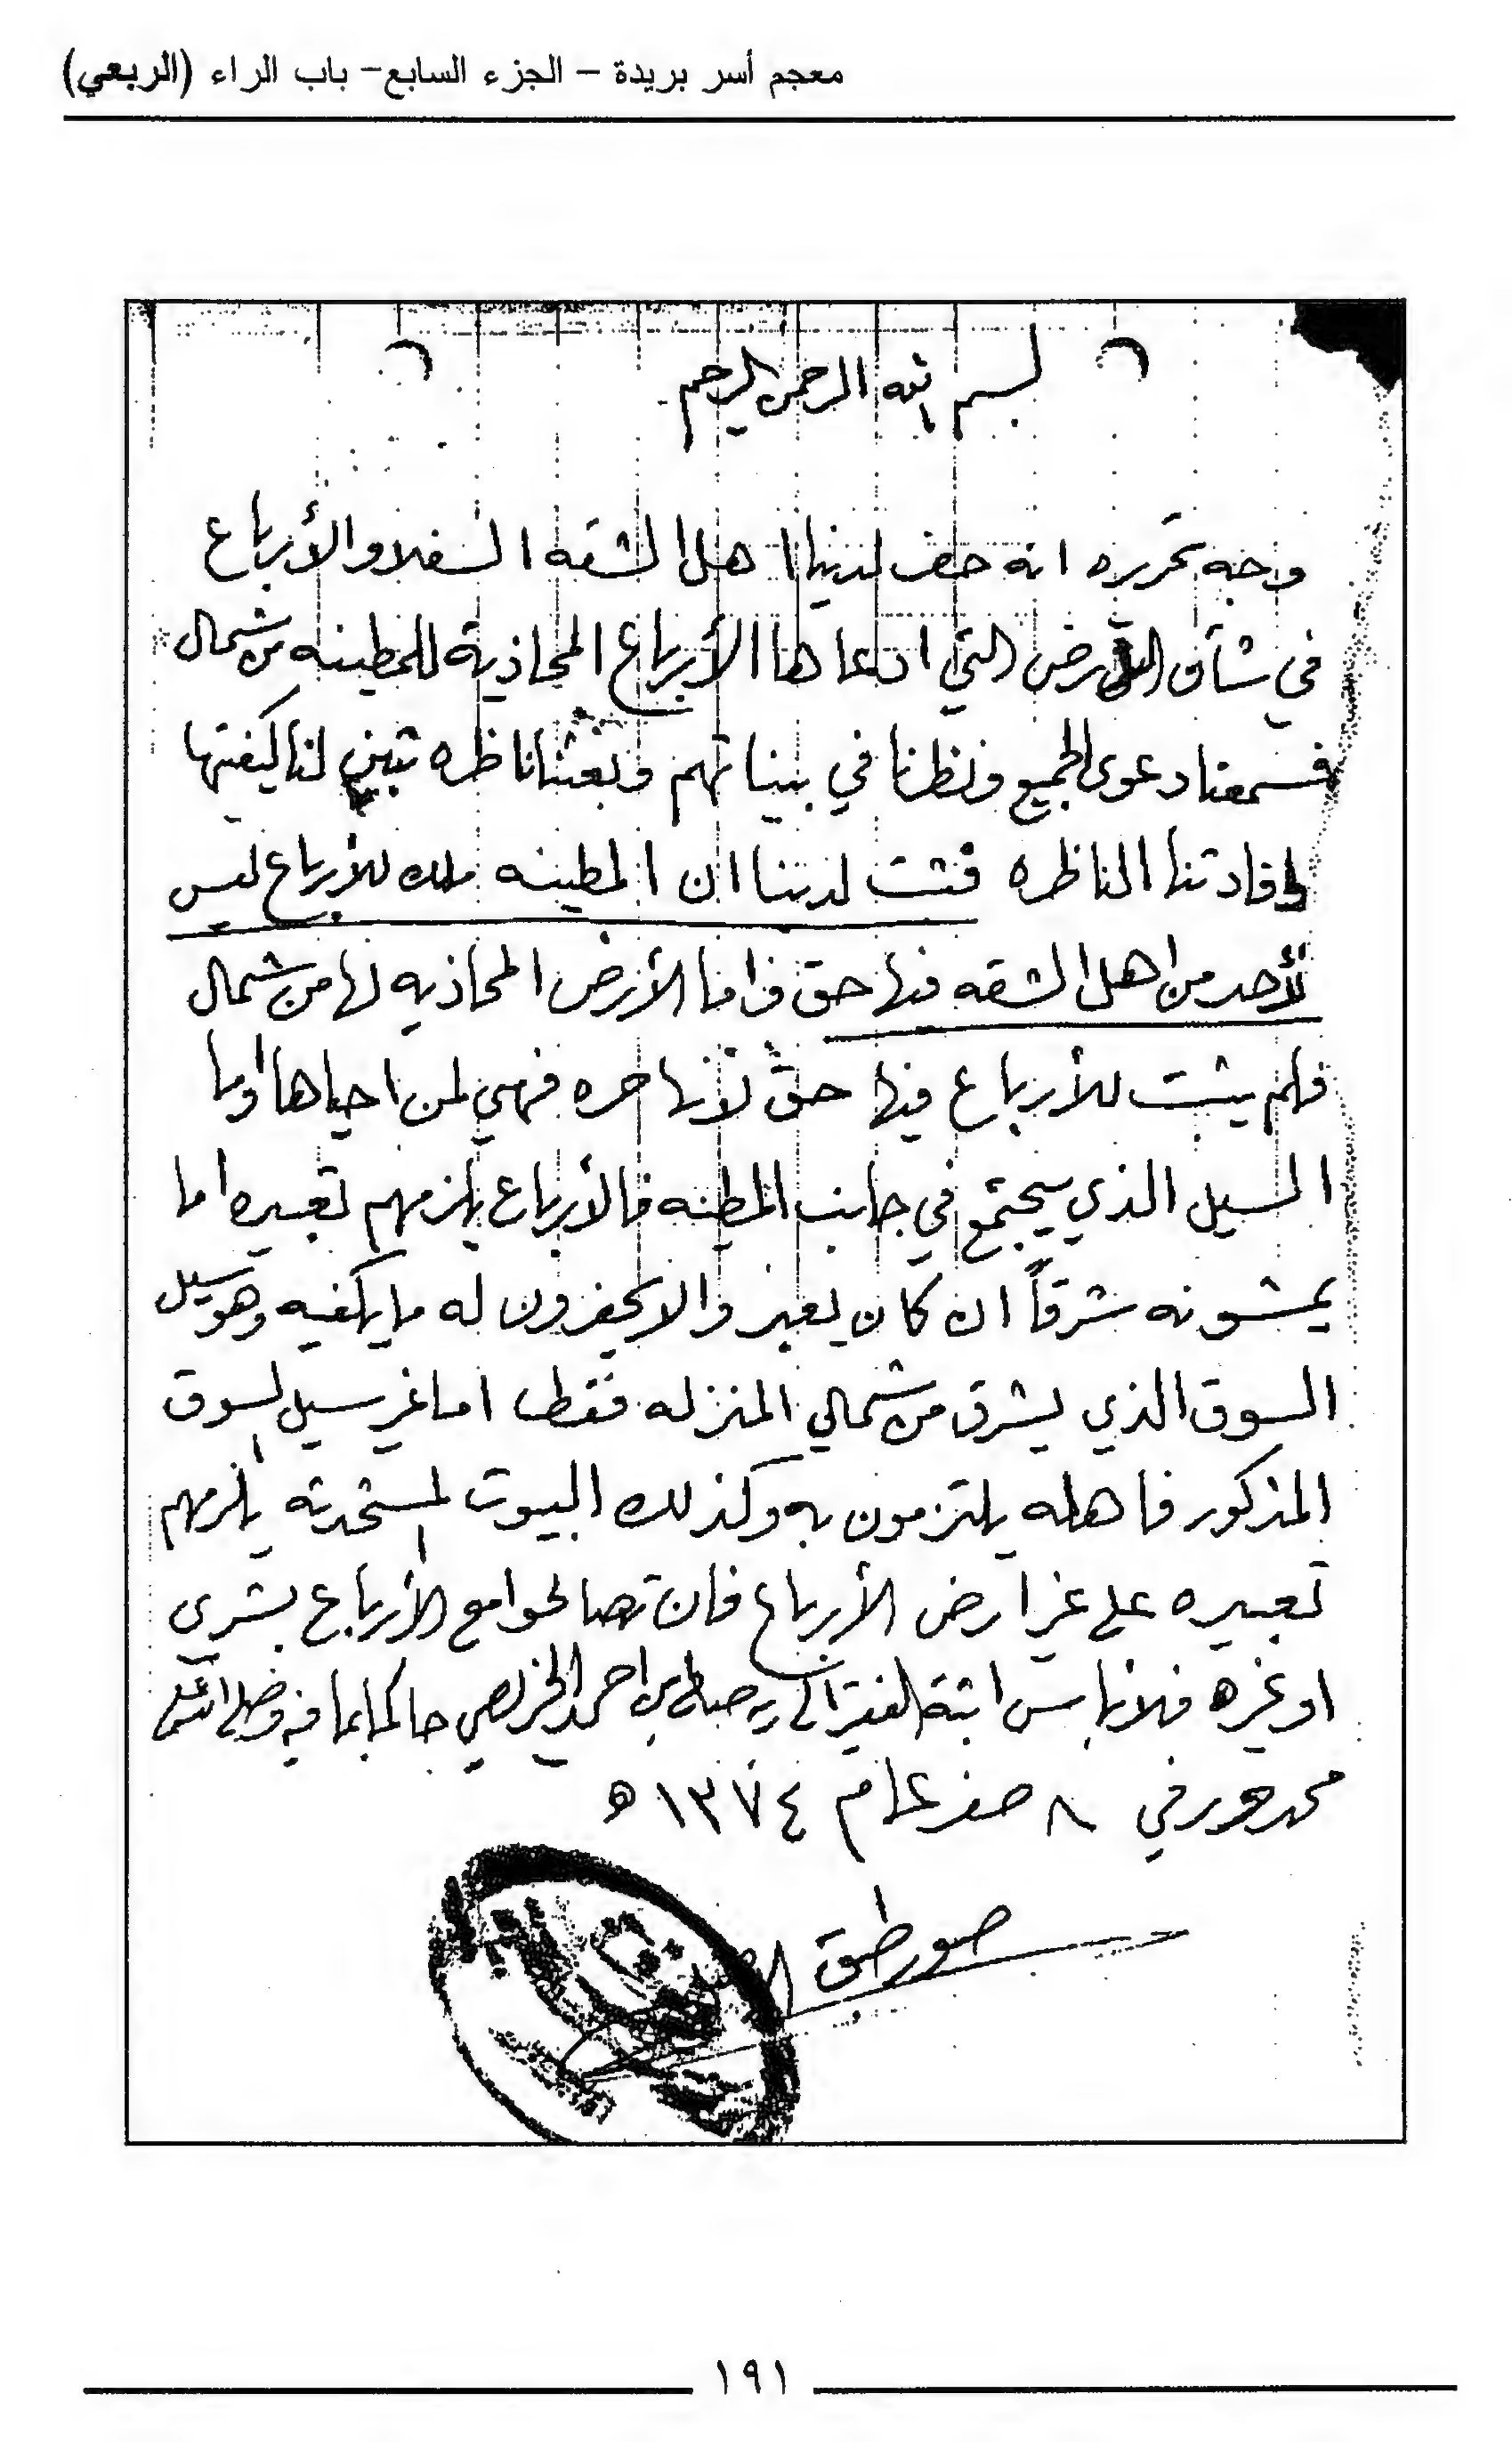 معجم أسر بريدة – الجزء السابع– باب الراء (الربعي)
بسم الله الرحمن الرحيم
وجه تحريره انه حضر لدينا اهل الشقه السفلا والأرباع
في شأن الأرض التي ادعاها الأرباع المحاذية للمطينه من شمال
فسمعنا دعوى الجميع ونظرنا في بيناتهم وبعثنا ناظره تبين لنا كيفيتها
وافادتنا الناظره فثبت لدينا ان المطينه ملك للأرباع ليس
لأحد من اهل الشقه فيها حق واما الأرض المحاذيه لها من شمال
فلم يثبت للأرباع فيها حق لأنها حره فهي لمن احياها واما
السيل الذي يجتمع في جانب المطينه فالأرباع يلزمهم تعبيره اما
يمشونه شرقاً ان كان يعبر والا يحفرون له ما يكفيه وهو سيل
السوق الذي يشرق من شمالي المنزله فقط اما غير سيل السوق
المذكور فاهله يلتزمون به وكذلك البيوت المستحدثه يلزمهم
تعبيره على غير ارض الأرباع فان تصالحوا مع الأرباع بشري
او غيره فلا بأس اثبته الفقير الى ربه صالح بن احمد الخريصي حاكما بما فيه وصلى الله على
محمد حرر في ٨ صفر عام ١٣٧٤ه
صور طبق
١٩١